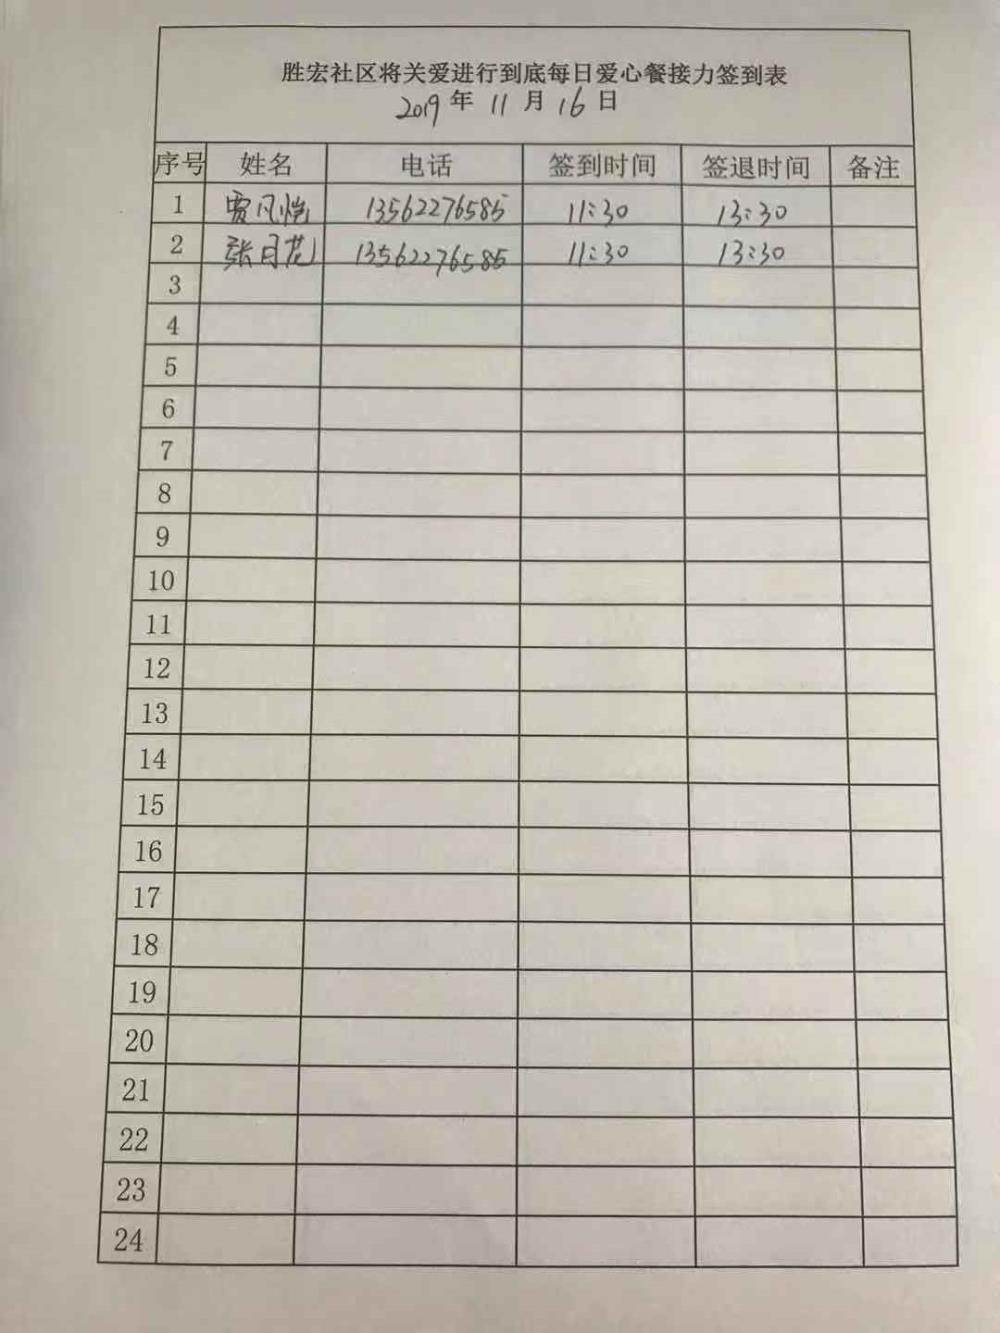 胜宏社区将关爱进行到底每日爱心餐接力签到表
2019年 11月 16日
序号 姓名 电话 签到时间 签退时间 备注
1 贾风恺 13562276585 11:30 13:30
2 张月花 13562276585 11:30 13:30
3
4
5
6
7
8
9
10
11
12
13
14
15
16
17
18
19
20
21
22
23
24